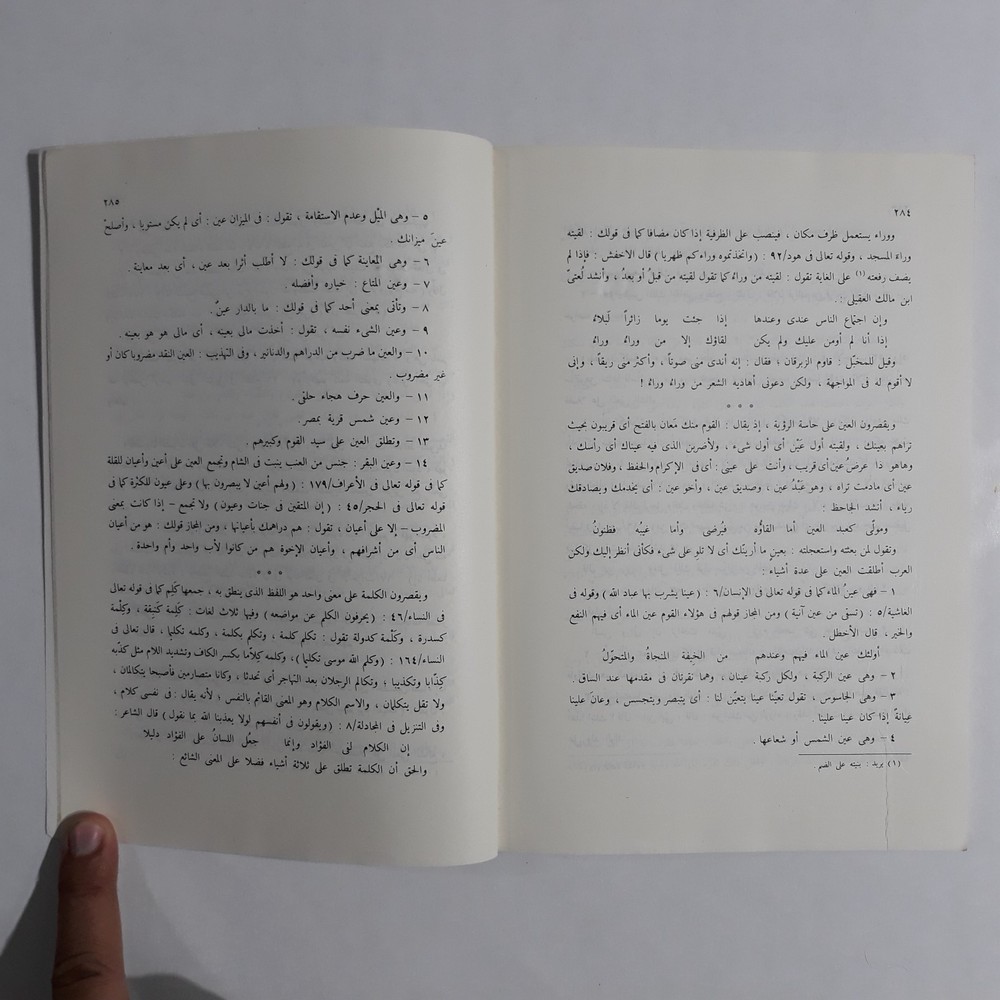 ٢٨٤
ووراء يستعمل ظرف مكان ، فينصب على الظرفية إذا كان مضافا كما فى قولك : لقيته
وراءَ المسجد ، وقوله تعالى فى هود/٩٢ : (واتخذتموه وراءكم ظهريا) قال الاخفش : فإذا لم
يضف رفعته (١) على الغاية تقول : لقيته من وراءُ كما تقول لقيته من قبلُ أو بعدُ ، وأنشد لُعتىّ
ابن مالك العقيلى :
وإن اجتماع الناس عندى وعندها إذا جئت يوما زائراً لَبلاءُ
إذا أنا لم أومن عليك ولم يكن لقاؤك إلا من وراءُ وراءُ
وقيل للمخبّل : قاوم الزبرقان ؛ فقال : إنه أندى منى صوتاً ، وأكثر منى ريقاً ، وإنى
لا أقوم له فى المواجهة ، ولكن دعونى أهاذيه الشعر من وراءُ وراءُ !
* * *
ويقصرون العين على حاسة الرؤية ، إذ يقال : القوم منك مَعان بالفتح أى قريبون بحيث
تراهم بعينك ، ولقيته أول عَيْن أى أول شىء ، ولأضربن الذى فيه عيناك أى رأسك ،
وهاهو ذا عرضُ عين أى قريب ، وأنت على عينى : أى فى الإكرام والحفظ ، وفلان صديق
عين أى مادمت تراه ، وهو عَبْدُ عين ، وصديق عين ، وأخو عين : أى يخدمك ويصادقك
رياء ، أنشد الجاحظ :
ومولًى كعبد العين أما لقاؤه فيُرضى وأما غيبُه فظنونُ
وتقول لمن بعثته واستعجلته : بعينٍ ما أرينّك أى لا تلو على شىء فكأنى أنظر إليك ولكن
العرب أطلقت العين على عدة أشياء :
١ – فهى عينُ الماء كما فى قوله تعالى فى الإنسان/٦ : (عينا يشرب بها عباد الله) وقوله فى
الغاشية/٥ : (تسقى من عين آنية) ومن المجاز قولهم فى هؤلاء القوم عين الماء أى فيهم النفع
والخير ، قال الأخطل .
أولئك عين الماء فيهم وعندهم من الخيفة المنجاةُ والمتحوّلُ
٢ – وهى عين الركبة ، ولكل ركبة عينان ، وهما نقرتان فى مقدمها عند الساق .
٣ – وهى الجاسوس ، تقول تعيّنا عينا يتعيّن لنا : أى يتبصر ويتجسس ، وعانَ علينا
عِيانةً إذا كان عينا علينا .
٤ – وهى عين الشمس أو شعاعها .
(١) يريد : بنيته على الضم .
٢٨٥
٥ – وهى الميْل وعدم الاستقامة ، تقول : فى الميزان عين : أى لم يكن مستويا ، وأصلحْ
عينَ ميزانك .
٦ – وهى المعاينة كما فى قولك : لا أطلب أثرا بعد عين ، أى بعد معاينة .
٧ – وعين المتاع : خياره وأفضله .
٨ – وتأتى بمعنى أحد كما فى قولك : ما بالدار عينٌ .
٩ – وعين الشىء نفسه ، تقول : أخذت مالى بعينه ، أى مالى هو هو بعينه .
١٠ – والعين ما ضرب من الدراهم والدنانير ، وفى التهذيب : العين النقد مضروبا كان أو
غير مضروب .
١١ – والعين حرف هجاء حلقى .
١٢ – وعين شمس قرية بمصر .
١٣ – وتطلق العين على سيد القوم وكبيرهم .
١٤ – وعين البقر : جنس من العنب ينبت فى الشام وتجمع العين على أعين وأعيان للقلة
كما فى قوله تعالى فى الأعراف/١٧٩ : (ولهم أعين لا يبصرون بها) وعلى عيون للكثرة كما فى
قوله تعالى فى الحجر/٤٥ : (إن المتقين فى جنات وعيون) ولا تجمع – إذا كانت بمعنى
المضروب – إلا على أعيان ، تقول : هم دراهمك بأعيانها ، ومن المجاز قولك : هو من أعيان
الناس أى من أشرافهم ، وأعيان الإخوة هم من كانوا لأب واحد وأم واحدة .
* * *
ويقصرون الكلمة على معنى واحد هو اللفظ الذى ينطق به ، جمعها كَلِم كما فى قوله تعالى
فى النساء/٤٦ : (يحرفون الكلم عن مواضعه) وفيها ثلاث لغات : كَلِمة كَنَبِقة ، وكِلْمة
كسدرة ، وكَلْمة كدولة تقول : تكلم كلمة ، وتكلم بكلمة ، وكلمه تكليما ، قال تعالى فى
النساء/١٦٤ : (وكلم الله موسى تكليما) ، وكلمه كِلّاما بكسر الكاف وتشديد اللام مثل كذّبه
كِذّابا وتكذيبا ؛ وتكالم الرجلان بعد التهاجر أى تحدثا ، وكانا متصارمين فأصبحا يتكالمان ،
ولا تقل يتكلمان ، والاسم الكلام وهو المعنى القائم بالنفس ؛ لأنه يقال : فى نفسى كلام ،
وفى التنزيل فى المجادلة/٨ : (ويقولون فى أنفسهم لولا يعذبنا الله بما نقول) قال الشاعر :
إن الكلام لفى الفؤاد وإنما جعُل اللسانُ على الفؤاد دليلا
والحق أن الكلمة تطلق على ثلاثة أشياء فضلا على المعنى الشائع :